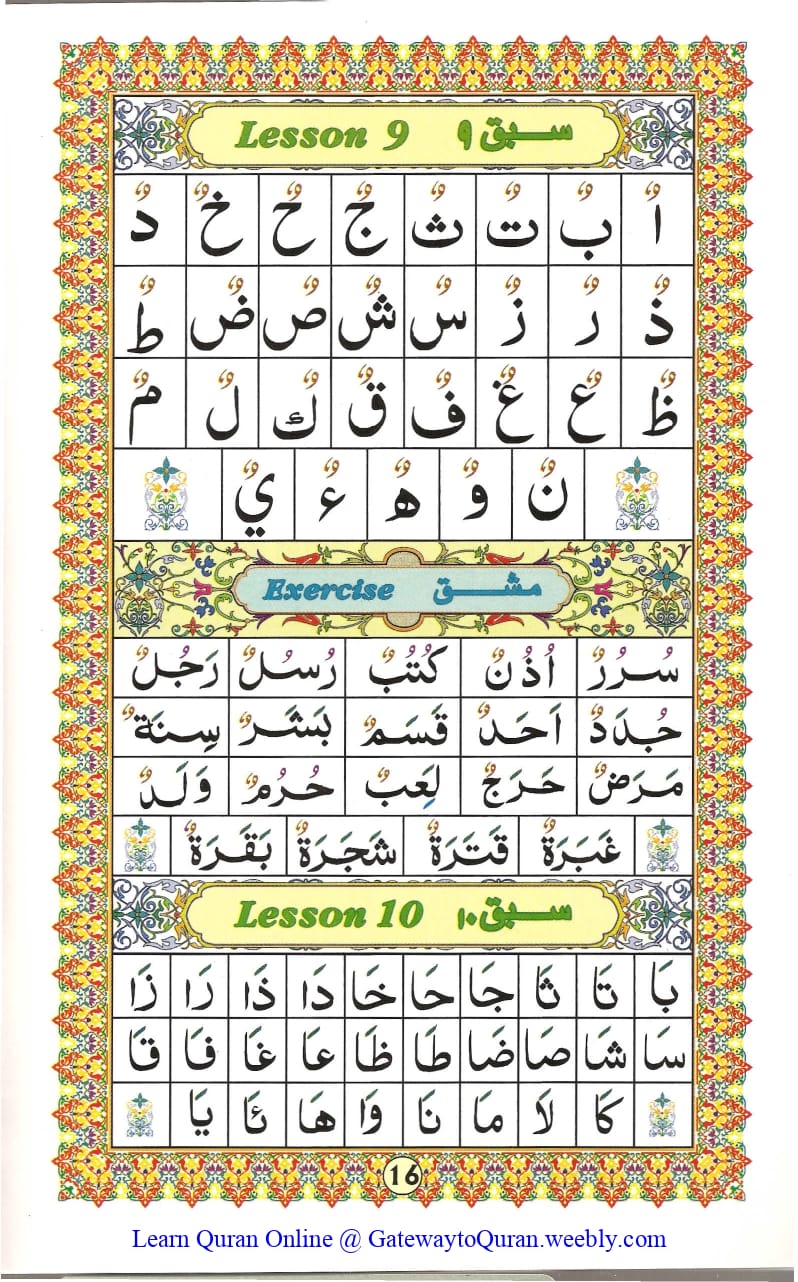 Lesson 9 سبق ۹
اٌ بٌ تٌ ثٌ جٌ حٌ خٌ دٌ
ذٌ رٌ زٌ سٌ شٌ صٌ ضٌ طٌ
ظٌ عٌ غٌ فٌ قٌ كٌ لٌ مٌ
نٌ وٌ هٌ ءٌ يٌ
Exercise مشق
سُرُرٌ اُذُنٌ كُتُبٌ رُسُلٌ رَجُلٌ
جُدَدٌ اَحَدٌ قَسَمٌ بَشَرٌ سِنَةٌ
مَرَضٌ حَرَجٌ لَعِبٌ حُرُمٌ وَلَدٌ
غَبَرَةٌ قَتَرَةٌ شَجَرَةٌ بَقَرَةٌ
Lesson 10 سبق ۱۰
بَا تَا ثَا جَا حَا خَا دَا ذَا رَا زَا
سَا شَا صَا ضَا طَا ظَا عَا غَا فَا قَا
كَا لَا مَا نَا وَا هَا ئَا يَا
16
Learn Quran Online @ GatewaytoQuran.weebly.com